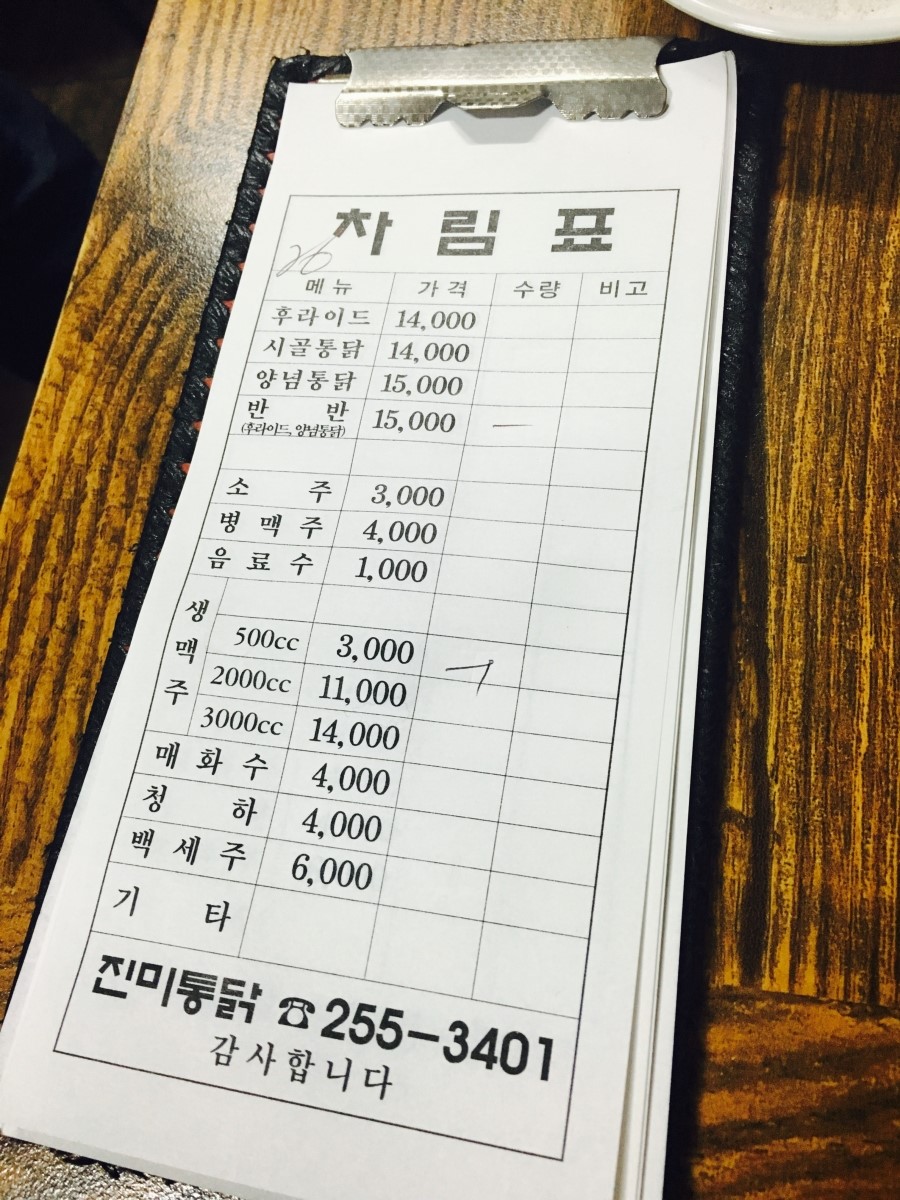 차림표
26
메뉴 가격 수량 비고
후라이드 14,000
시골통닭 14,000
양념통닭 15,000
반반 15,000 ―
(후라이드, 양념통닭)
소주 3,000
병맥주 4,000
음료수 1,000
생맥주
500cc 3,000
2000cc 11,000
3000cc 14,000
매화수 4,000
청하 4,000
백세주 6,000
기타
진미통닭 ☎255-3401
감사합니다